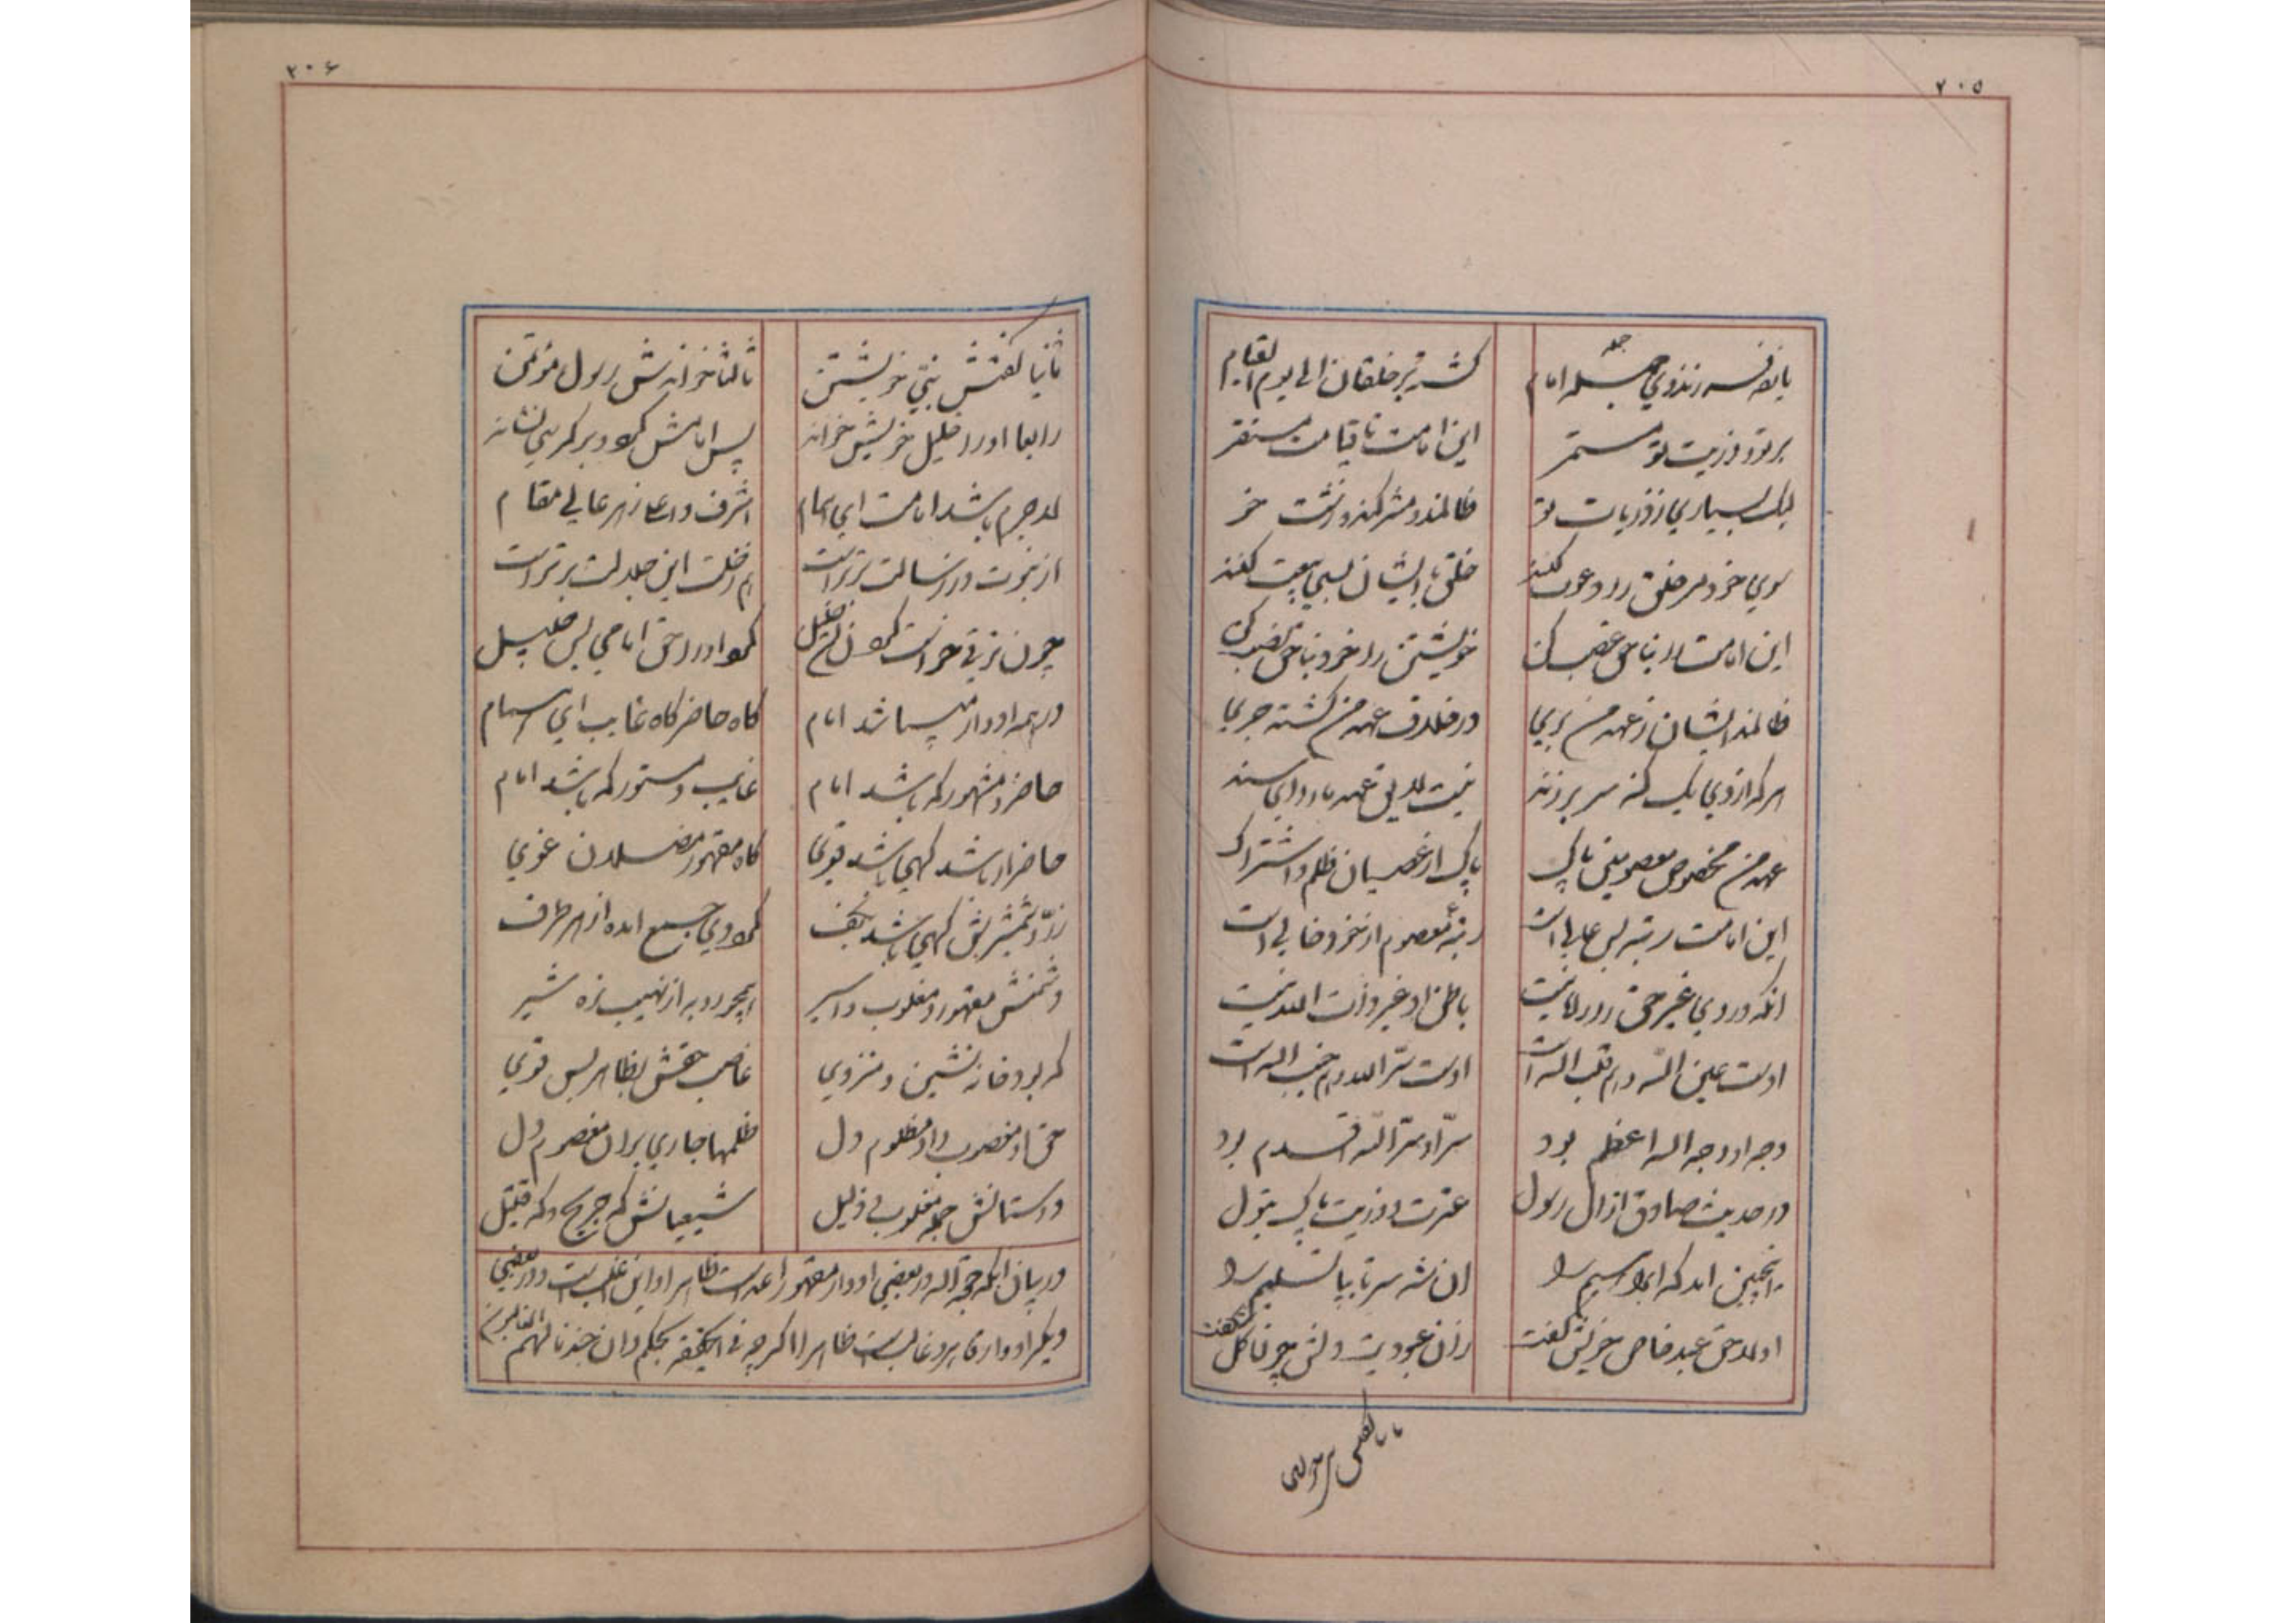 ۲۰۵
یا نه فرزندوی جمله امام کشته بر خلقان الی یوم القیام
بر تو و ذریت تو مستمر این امامت تا قیامت مستقر
لیک بسیاری ز ذریات تو ظالمند و مشرکند و زشت خو
سوی خود مر خلق را دعوت کنند خلق با ایشان بسی بیعت کنند
این امامت را بناحق غصب کن خویشتن را خود بناحق نصب کن
ظالمند ایشان ز عهد من بری در خلاف عهد من گشته جری
هر که از وی یک گنه سر بر زند نیست لایق عهد ما را ای سند
عهد من مخصوص معصومین پاک پاک از عصیان ظلم و اشتراک
این امامت رتبه بس عالی است رتبه معصوم از خود خالی است
انکه در وی غیر حق را راه نیست باطن او غیر ذات الله نیست
اوست عین الله و هم قلب اله است اوست سر الله و هم جنب اله است
وجه او وجه اله اعظم بود سر او سر اله اقدم بود
در حدیث صادق از ال رسول عترت و ذریت پاک بتول
اینچنین امد که ابراهیم را ان شه سر تا بپا تسلیم را
اولا حق عبد خاص خویش گفت زان عبودیت دلش چون گل شکفت
۲۰۶
ثانیا گفتش نبی خویشتن ثالثا خواندش رسول مؤتمن
رابعا او را خلیل خویش خواند پس امامش کرد و بر کرسی نشاند
لاجرم باشد امامت ای همام اشرف و اعلا ز هر عالی مقام
از نبوت وز رسالت برتر است هم ز خلت این جلالت برتر است
چون ترقی خواست کردن خلیل کرد او را حق امامی بس جلیل
در همه ادوار میباشد امام گاه حاضر گاه غایب ای همام
حاضر و مشهور گه باشد امام غایب و مستور گه باشد امام
حاضر ار باشد گهی باشد قوی گاه مقهور مضلان غوی
زد شمشیرش گهی باشد بکف گرد وی جمع امده از هر طرف
دشمنش مقهور و مغلوب و اسیر همچو روبه از نهیب نره شیر
گه بود خانه نشین و منزوی غاصب حقش بظاهر بس قوی
حق او مغصوب و او مظلوم دل ظلمها جاری بران معصوم دل
دوستانش جمله مغلوب و ذلیل شیعیانش گه جریح و گه قتیل
در بیان انکه حجة اله در بعضی ادوار مقهور اعداست ظاهرا و این غلب است و در بعضی
دیگر ادوار قاهر و غالبست ظاهرا اگر چه فی الحقیقه بحکم و ان جندنا لهم الغالبون